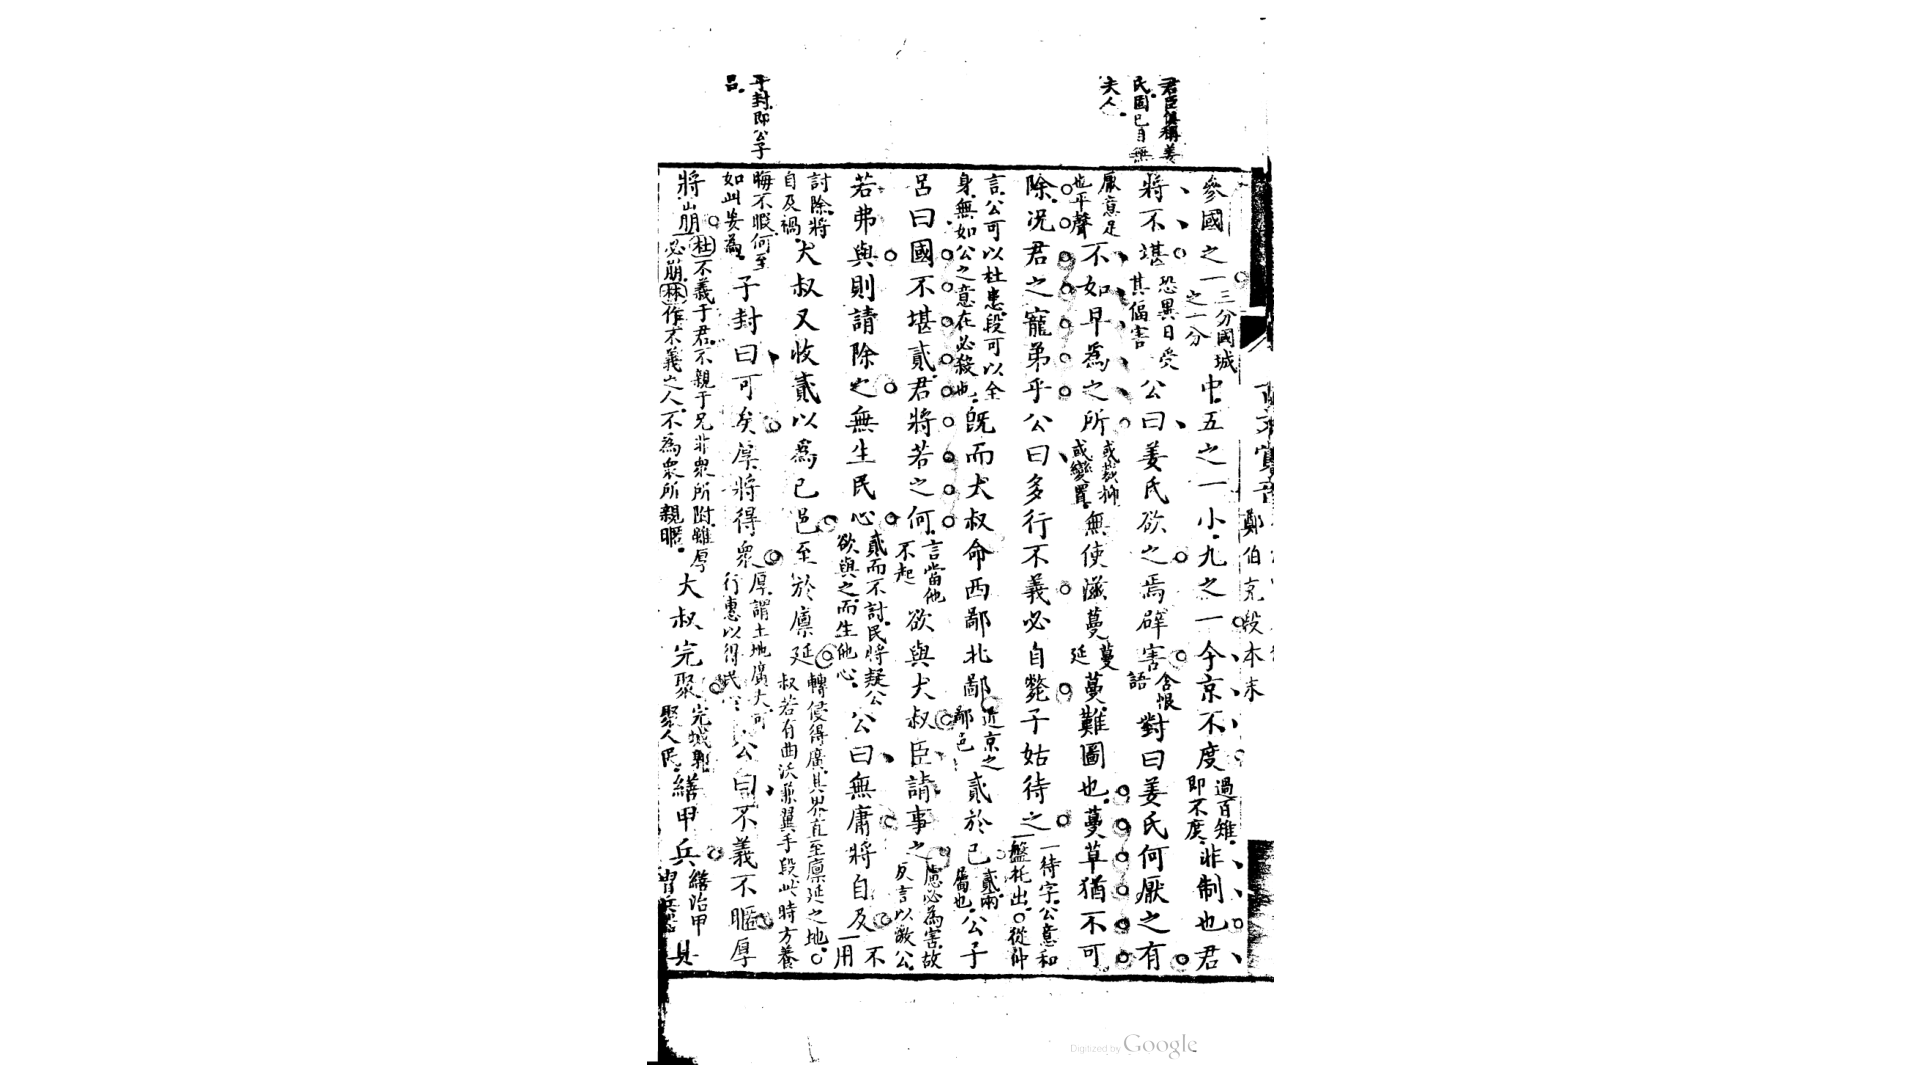 君臣俱稱姜
氏固已目無
夫人
子封即公子
呂
鄭伯克段本末
參國之一三分國城之一分中五之一小九之一今京不度過百雉即不度非制也君
將不堪恐異日受其偪害公曰姜氏欲之焉辟害含恨語對曰姜氏何厭之有
厭意足也平聲不如早為之所或裁抑或變置無使滋蔓蔓延蔓難圖也蔓草猶不可
除況君之寵弟乎公曰多行不義必自斃子姑待之一待字公意和盤托出○從仲
言公可以杜患段可以全身無如公之意在必殺也既而大叔命西鄙北鄙鄙邑近京之貳於己貳兩屬也公子
呂曰國不堪貳君將若之何言當他不起欲與大叔臣請事之慮必為害故反言以激公
若弗與則請除之無生民心貳而不討民將疑公欲與之而生他心公曰無庸將自及不用
討除將自及禍大叔又收貳以為己邑至於廩延轉侵得廣其界直至廩延之地○叔若有曲沃兼翼手段此時方養
晦不暇何至如此妄為子封曰可矣厚將得眾厚謂土地廣大可行惠以得民公曰不義不暱厚
將崩杜不義于君不親于兄非眾所附雖厚必崩林作不義之人不為眾所親暱大叔完聚完城郭聚人民繕甲兵繕治甲具
Digitized by Google